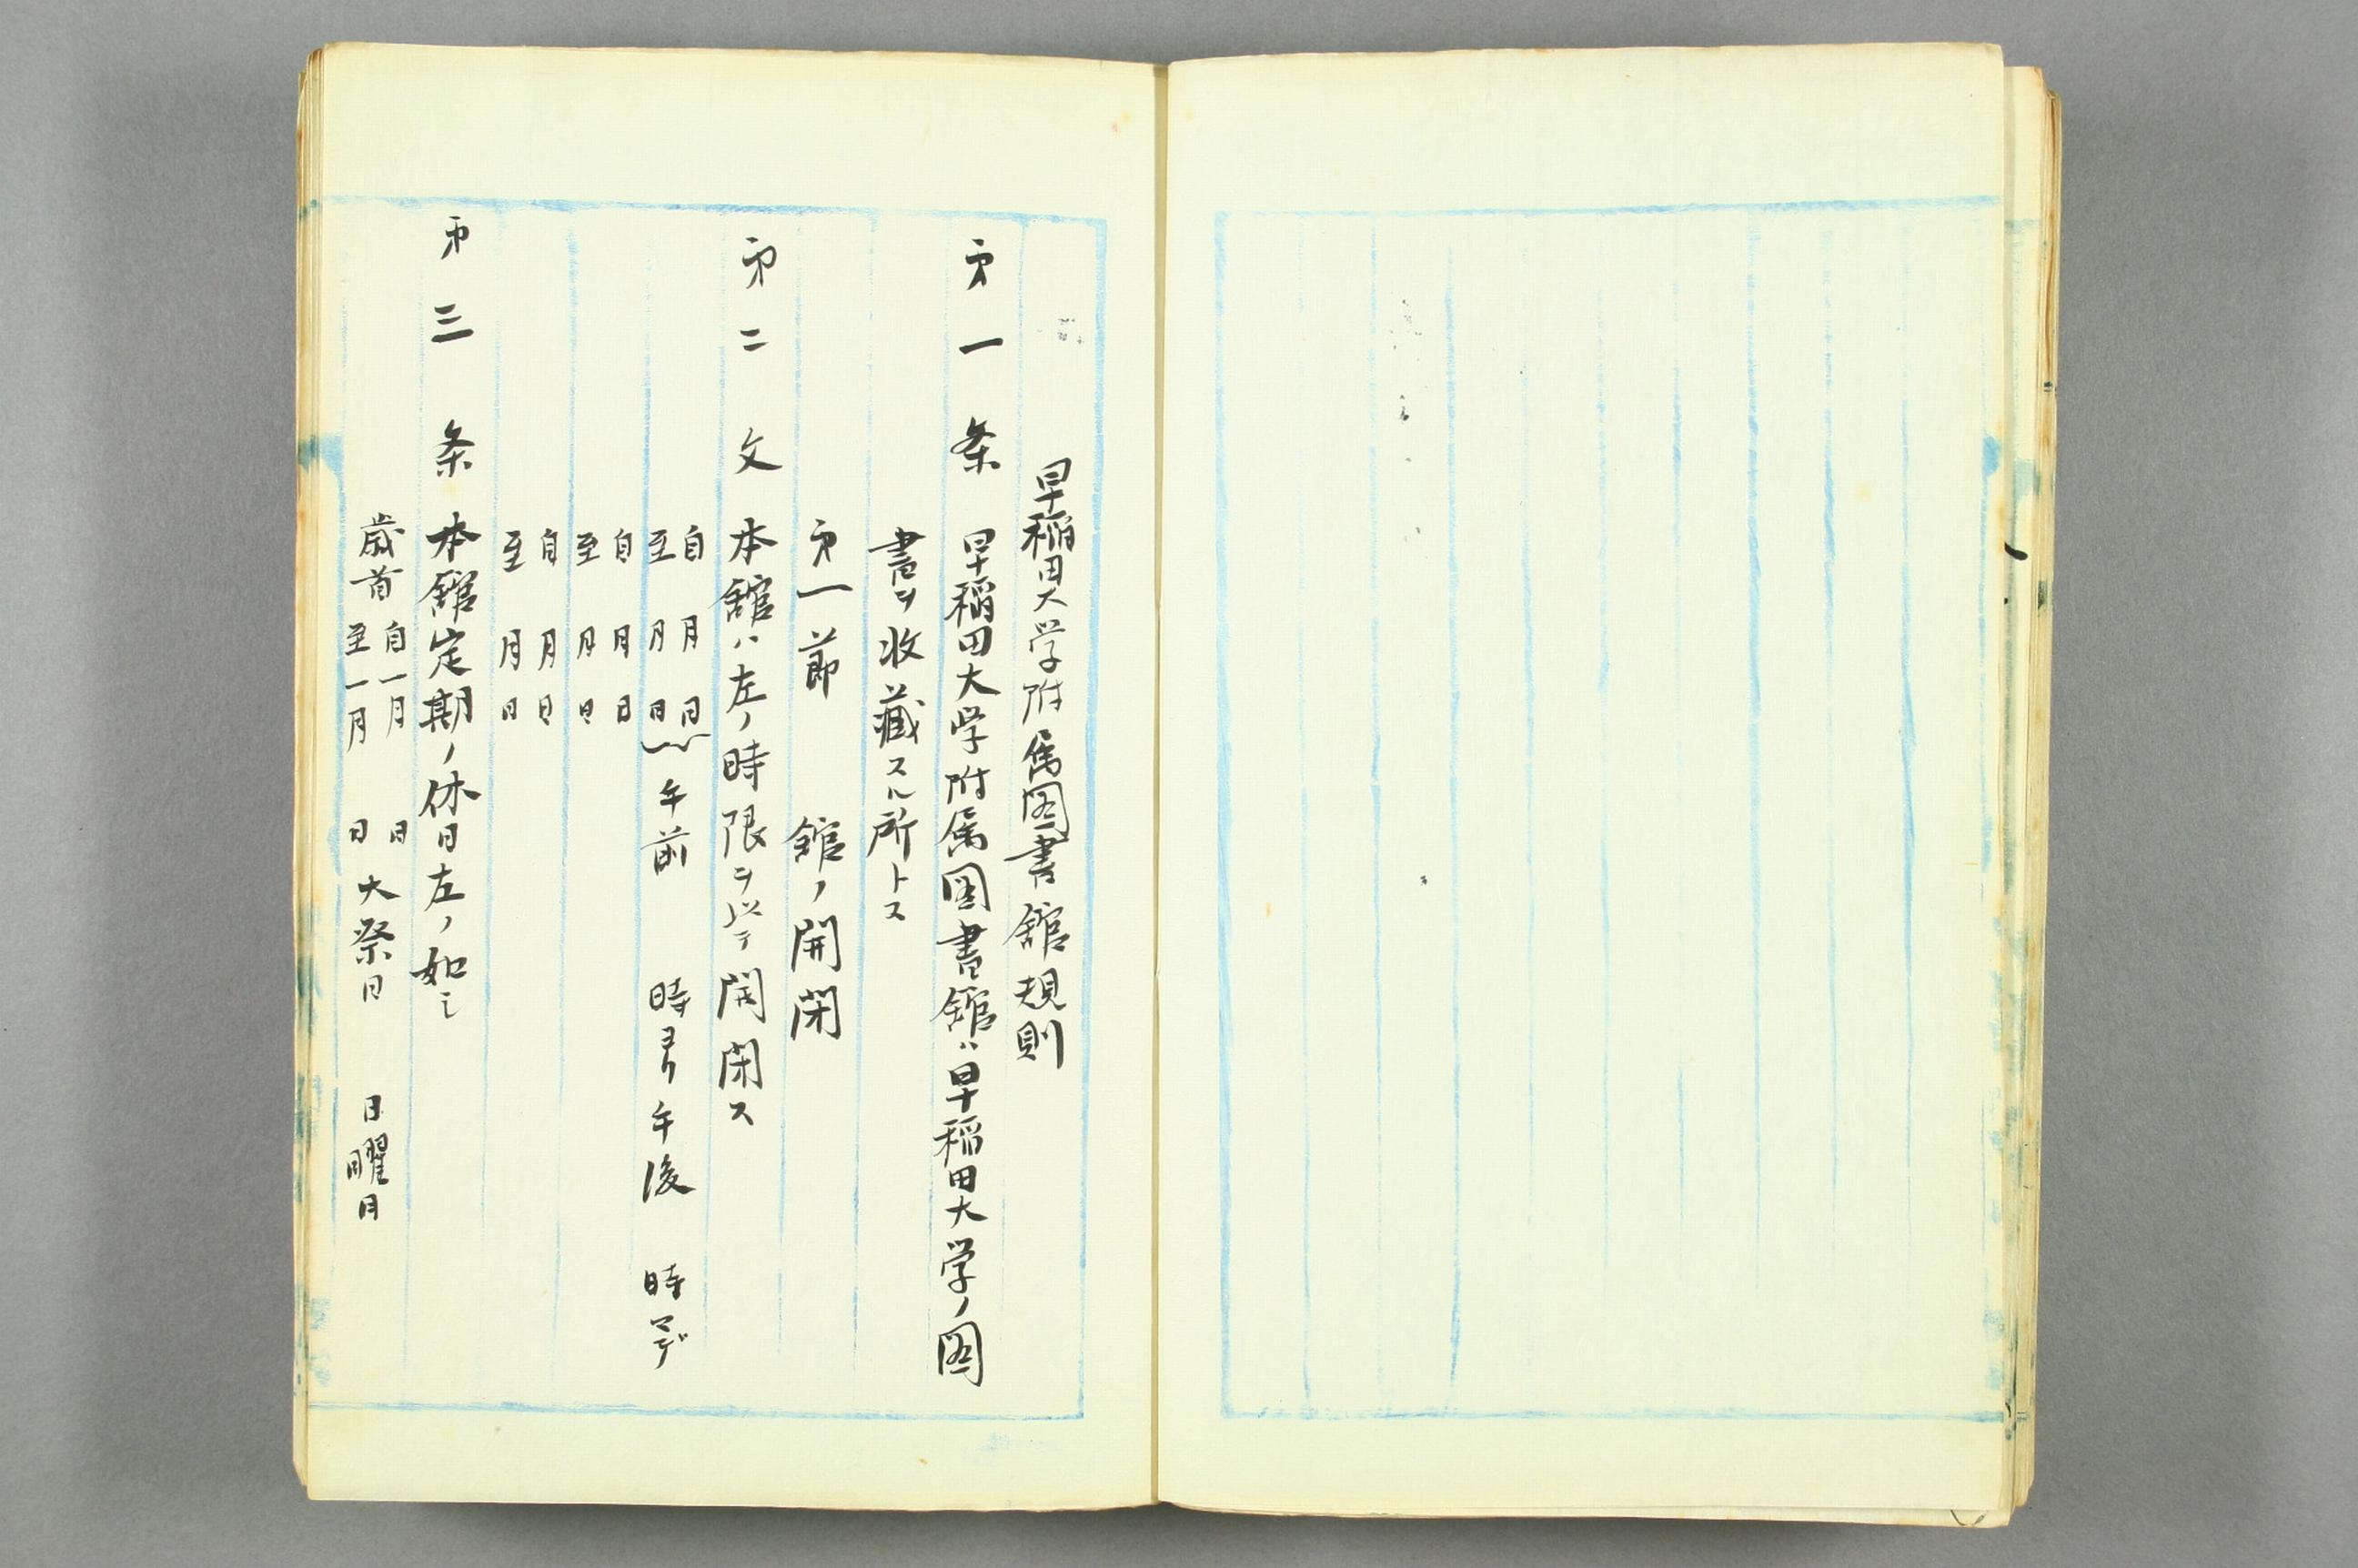 早稲田大学附属図書館規則
第一条 早稲田大学附属図書館ハ早稲田大学ノ図
書ヲ收藏スル所トス
第一節 館ノ開閉
第二文 本館ハ左ノ時限ヲ以テ開閉ス
自 月 日
至 月 日 午前 時ヨリ午後 時マデ
自 月 日
至 月 日
自 月 日
至 月 日
第三条 本館定期ノ休日左ノ如シ
歳首 自一月 日
至一月 日 大祭日 日曜日